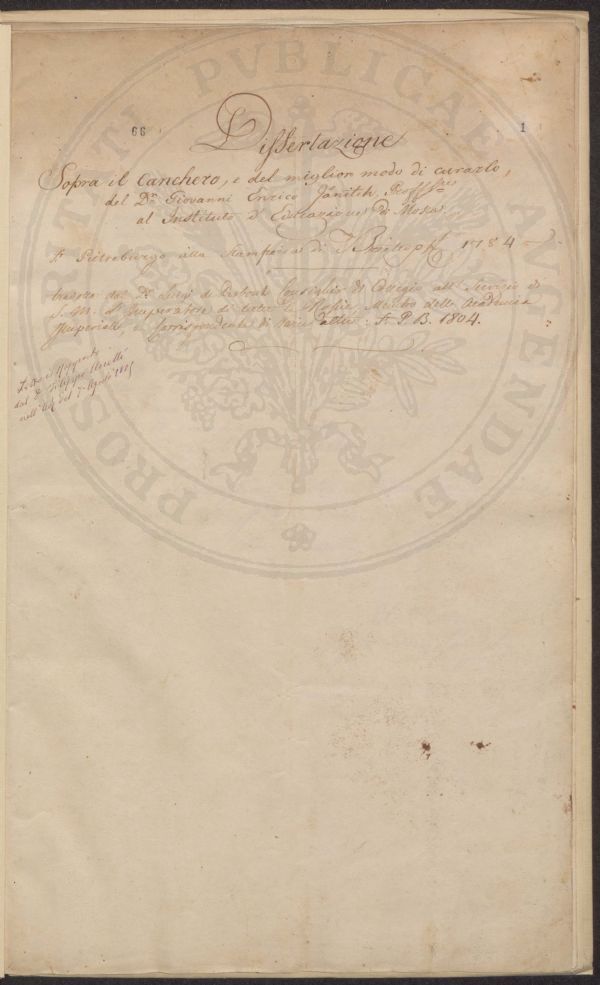 66
1
Dissertazione
Sopra il Canchero, e del miglior modo di curarlo,
del Dr Giovanni Enrico Jänitch, Proffre
al Instituto d'Educazione di Mosca
A Pietroburgo alla Stamperia di 1784
tradotta dal Dr Luigi di Consiglier di Collegio all Servizio di
S. M. l'Imperatore di tutte le Russie, Membro della Academia
Imperiale, e Corrispondente di varie altre. A P. B. 1804.
Letta
dal Dr Filippo
nell' del 7. Agosto 1805
PROSPERITATI PVBLICAE AVGENDAE